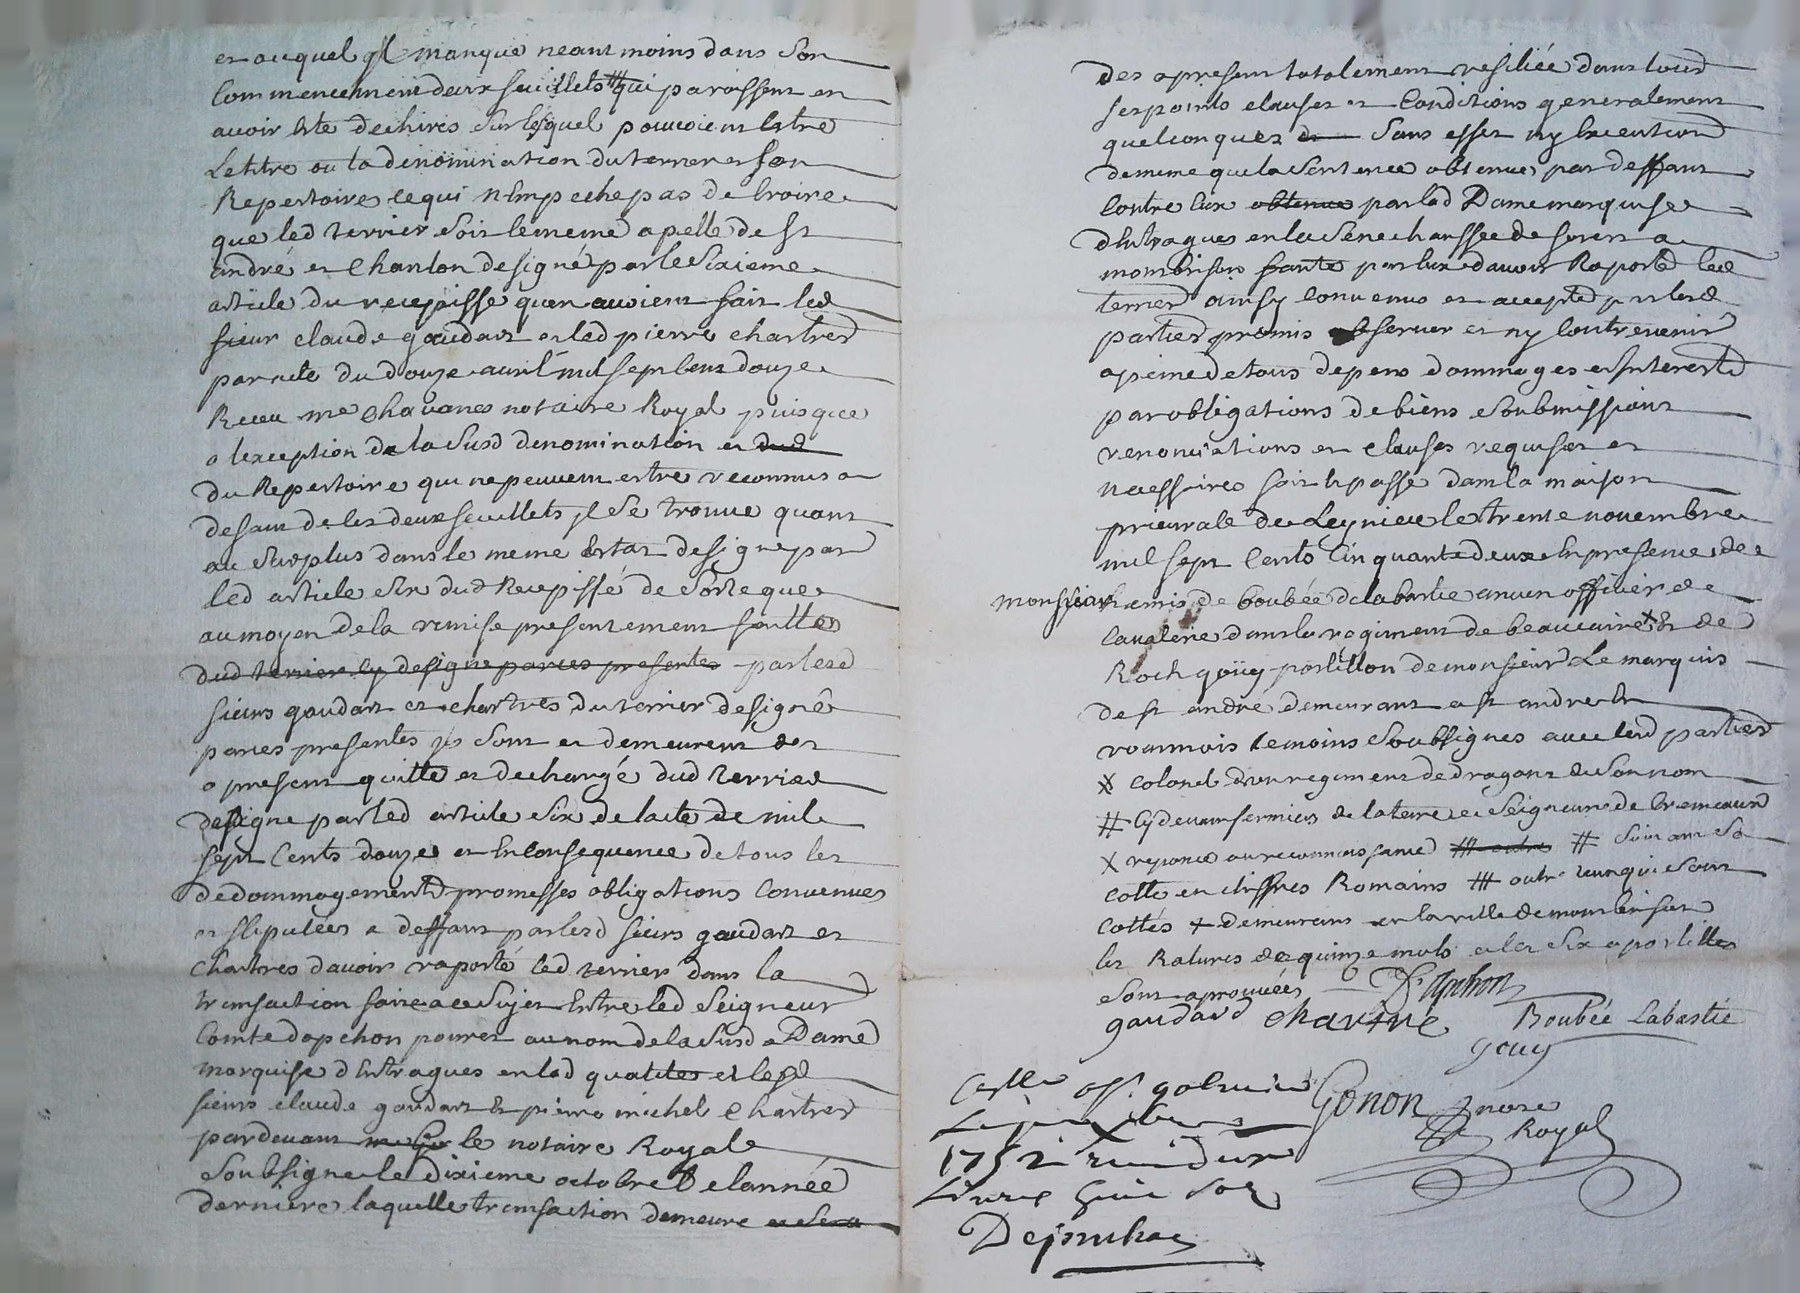 et auquel jl manque neantmoins dans son
Commencement deux feuillets ⧻ qui paroissent en
avoir ete dechires sur lesquel pouvoient estre
Letitre ou la dénomination du terrier et son
Repertoire ce qui n'empeche pas de Croire
que led terrier soit le meme apellé de st
andré et Chanlon designé par le Sixieme
article du recepisse quen avoient fait led
sieur claude gaudart et led pierre chartres
par acte du douze avril mil sept Cent douze
Receu me Chavanes notaire Royal puisque
a lexception de la susd denomination et dud
du Repertoire qui ne peuvent estre reconnus a
defaut de les deux feuillets jl se trouve quant
au surplus dans le meme Estat designé par
led article six dud Recepissé de sorte que
au moyen de la remise presentement faitte
dud terrier cy designe par ces presentes par lesd
sieurs gaudart et chartres du terrier designé
par ces presentes jls sont et demeurent des
a present quitte et dechargé dud terrier
designe par led article six de lacte de mil
sept Cents douze et En Consequence de tous les
dedommagements promesses obligations Convenues
et stipulées a deffaut par lesd sieurs gaudart et
Chartres d'avoir raporté led terrier dans la
transaction faite a ce Sujet Entre led Seigneur
Comte dapchon pour et au nom de la Susd Dame
marquise d'Entragues en lad qualité et lesd
sieurs claude gaudart et pierre michel Chartres
par devant le notaire Royal
Soubsigne le dixieme octobre de lannée
derniere laquelle transaction demeure et sera
des apresent totalement resiliée dans tous
ses points clauses et Conditions generalement
quelconques sans effet ny Execution
de meme que la Sentence obtenue par deffaut
Contre Eux obtenue par lad Dame marquise
d'Entragues en la Senechaussée de forest a
montbrison faute par Eux d'avoir Raporté led
terrier ainsy Convenu et accepté par lesd
parties promis observer et ny Contrevenir
a peine de tous depens dommages et Interests
par obligations de biens soubmissions
renonciations et Clauses requises et
necessaires fait et passé dans la maison
prieurale de Leynieu le trente novembre
mil sept Cents Cinquante deux En presence de
monssieur remis de boubée de labastie ancien officier de
Cavalerie dans le regiment de beaucaire X & de
Roch goüy postillon de monsieur Le marquis
de st andré demeurant a st andre En
roannois temoins Soubsignes avec lesd parties
X Colonel d'un regiment de dragons de son nom
# Cy devant fermiers de la terre et Seigneurie de Cremeaux
X reponce ou reconnoissance ⧻ outre # suivant sa
Cotte en chiffres Romains ⧻ outre un qui sont
Cottés + demeurant en la ville de montbrison
les Ratures de quinze mots et les six apostilles
sont aprouvées D'Apchon
gaudard Chartre Boubée Labastie
goüy
Gonon nore
Royal
1752